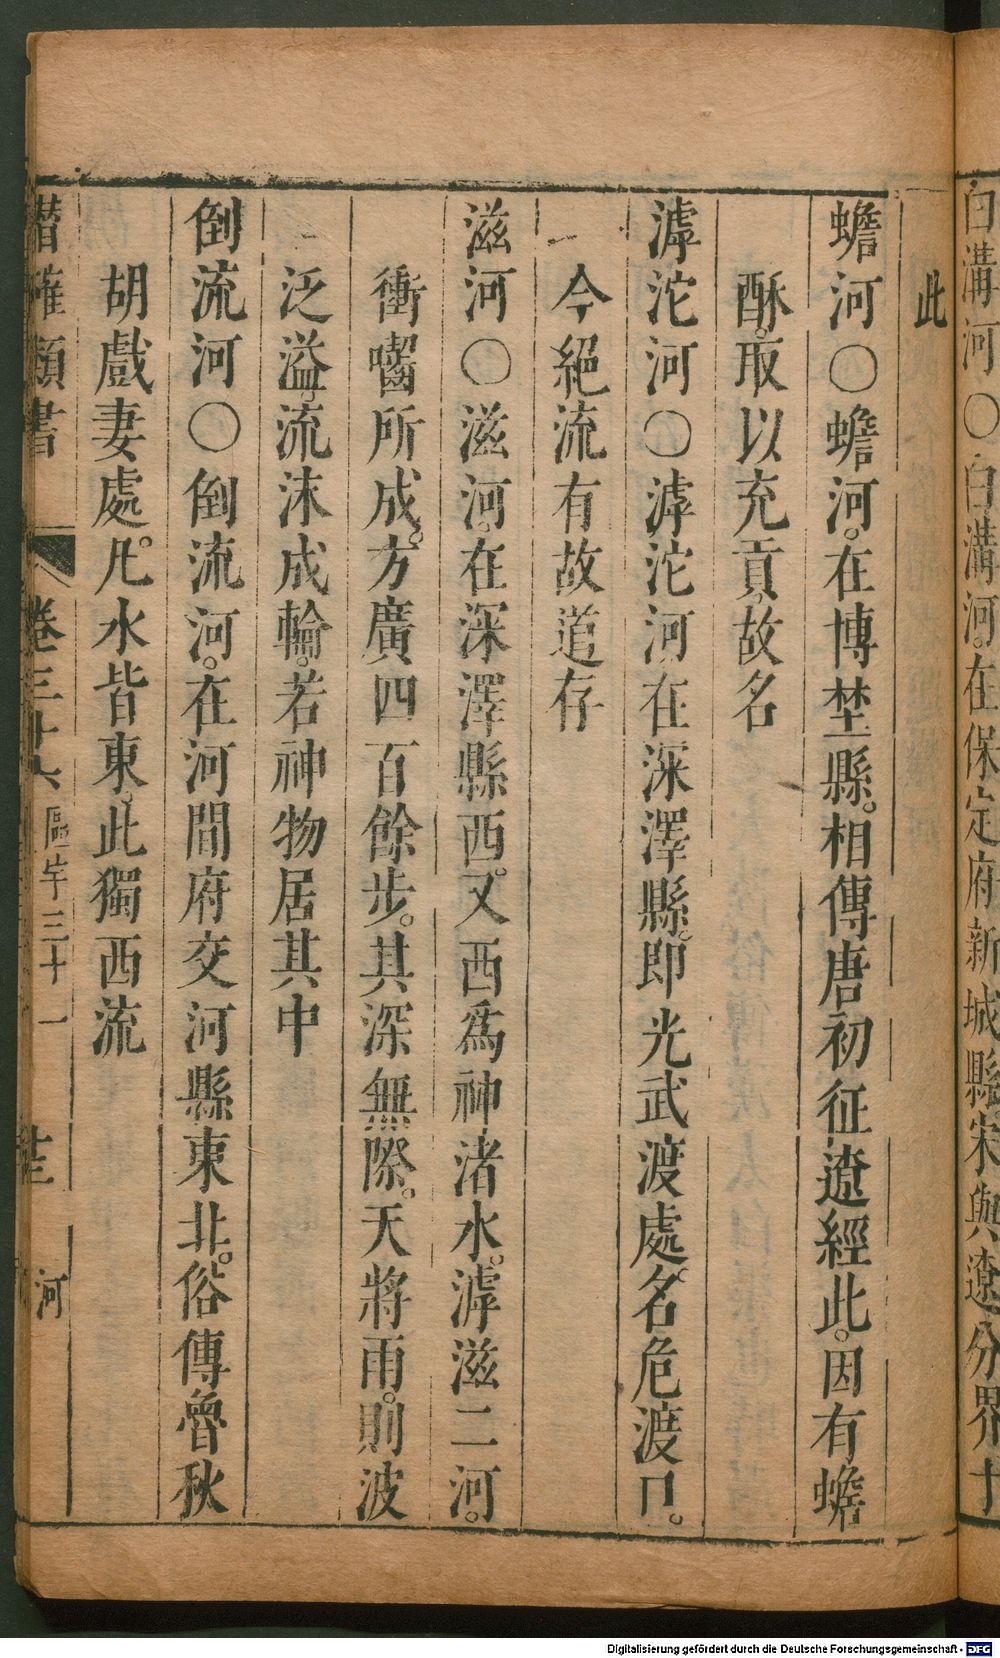 白溝河○白溝河。在保定府新城縣宋與遼分界于
此
蟾河○蟾河。在博埜縣。相傳唐初征遼經此。因有蟾
酥。取以充貢。故名
滹沱河○滹沱河。在深澤縣。即光武渡處。名危渡口。
今絕流有故道存
滋河○滋河。在深澤縣西。又西為神渚水。滹滋二河。
衝嚙所成。方廣四百餘步。其深無際。天將雨。則波
泛溢。流沫成輪。若神物居其中
倒流河○倒流河。在河間府交河縣東北。俗傳魯秋
胡戲妻處。凡水皆東。此獨西流
潛確類書 卷三十 區宇三十一 河
Digitalisierung gefördert durch die Deutsche Forschungsgemeinschaft - DFG